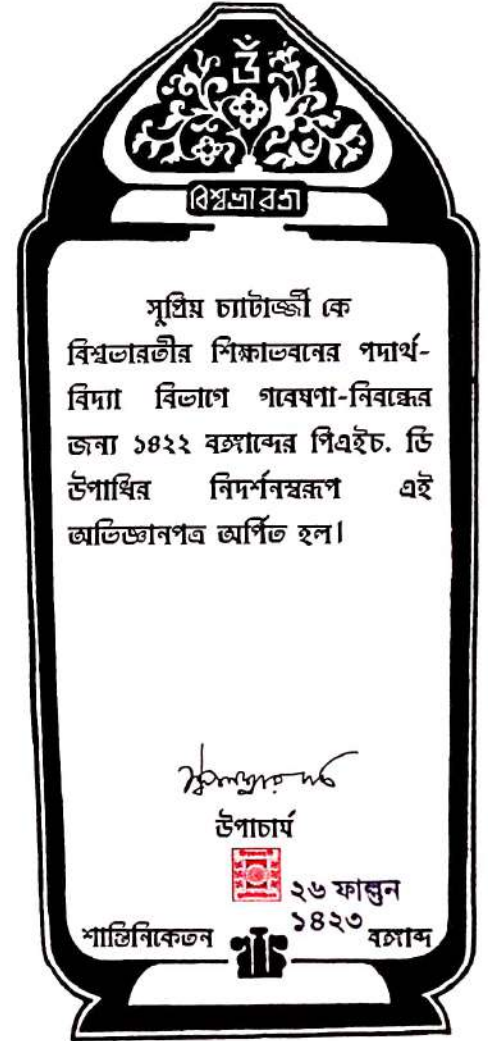 ওঁ
বিশ্বভারতী
সুপ্রিয় চ্যাটার্জ্জী কে
বিশ্বভারতীর শিক্ষাভবনের পদার্থ-
বিদ্যা বিভাগে গবেষণা-নিবন্ধের
জন্য ১৪২২ বঙ্গাব্দের পিএইচ. ডি
উপাধির নিদর্শনস্বরূপ এই
অভিজ্ঞানপত্র অর্পিত হল।
উপাচার্য
২৬ ফাল্গুন
১৪২৩
শান্তিনিকেতন বঙ্গাব্দ